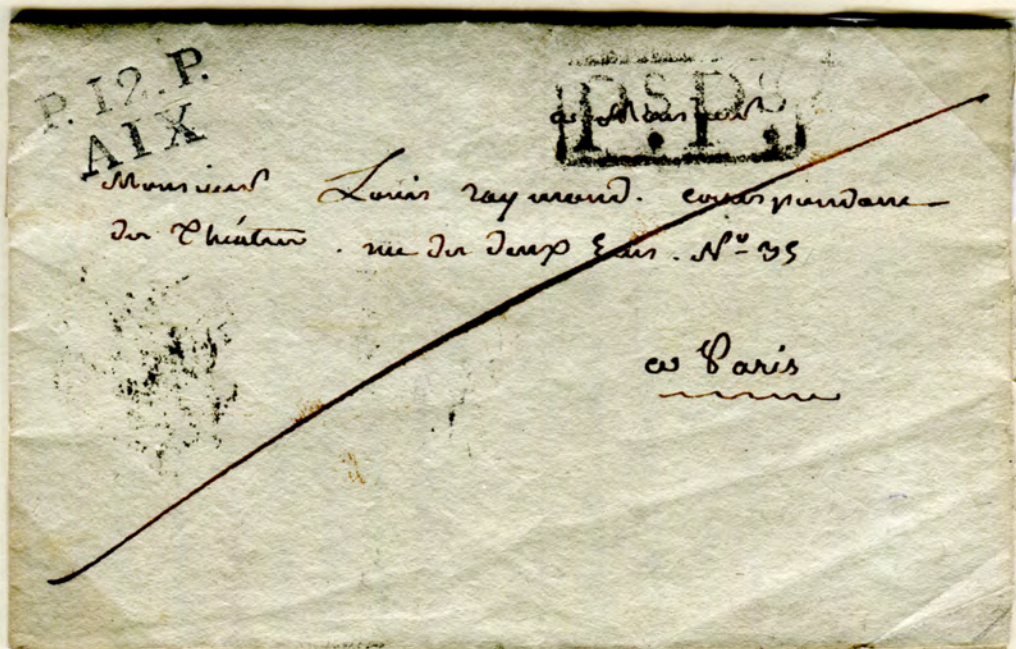 P.12.P.
AIX
P.P.
a Monsieur
Monsieur Louis raymond. correspondant
des Théatres. rue des deux Ecus. Nº 35
a Paris